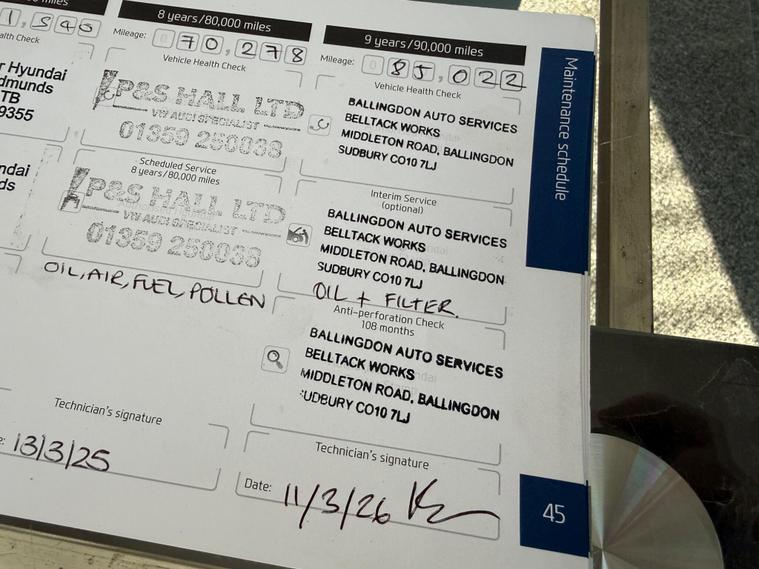 miles
1,540
alth Check
r Hyundai
dmunds
TB
9355
ndai
ds
8 years/80,000 miles
Mileage: 0 70,278
Vehicle Health Check
P&S HALL LTD
VW AUDI SPECIALIST
01359 250038
Scheduled Service
8 years/80,000 miles
P&S HALL LTD
VW AUDI SPECIALIST
01359 250038
OIL, AIR, FUEL, POLLEN
Technician's signature
e: 13/3/25
9 years/90,000 miles
Mileage: 0 85,022
Vehicle Health Check
BALLINGDON AUTO SERVICES
BELLTACK WORKS
MIDDLETON ROAD, BALLINGDON
SUDBURY CO10 7LJ
Interim Service
(optional)
BALLINGDON AUTO SERVICES
BELLTACK WORKS
MIDDLETON ROAD, BALLINGDON
SUDBURY CO10 7LJ
OIL + FILTER.
Anti-perforation Check
108 months
BALLINGDON AUTO SERVICES
BELLTACK WORKS
MIDDLETON ROAD, BALLINGDON
UDBURY CO10 7LJ
Technician's signature
Date: 11/3/26
Maintenance schedule
45